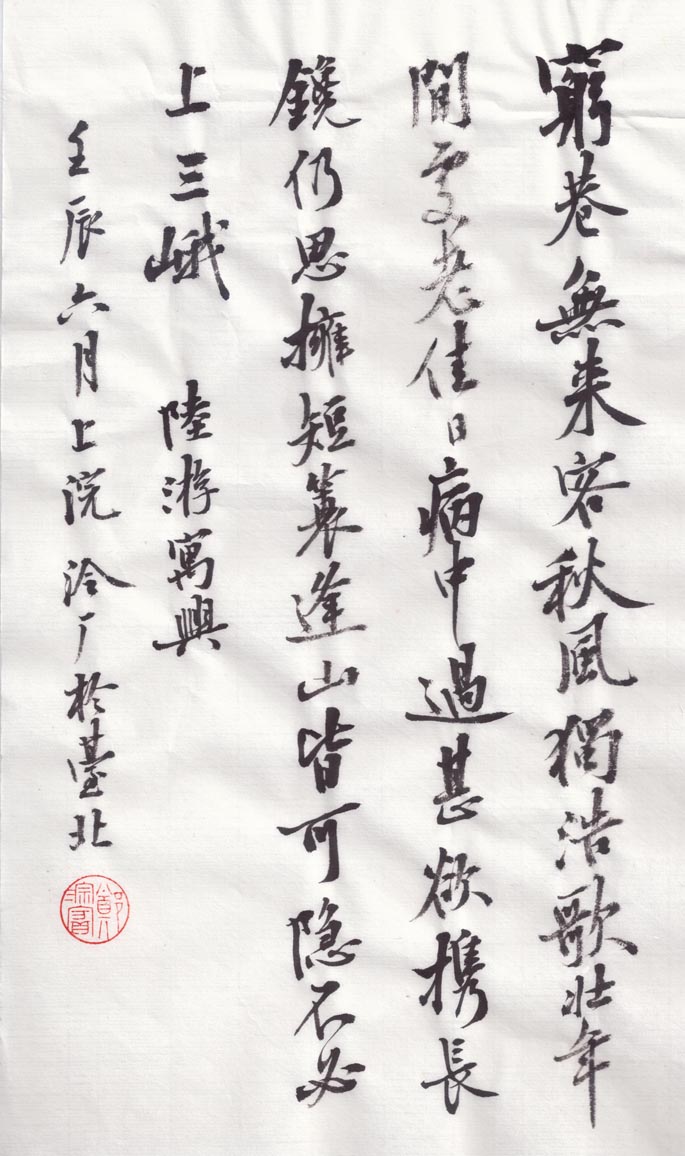 窮巷無来客秋風獨浩歌壯年
閒處老佳日病中過甚欲携長
鑱仍思擁短蓑逢山皆可隐不必
上三峨 陸游寓興
壬辰六月上浣 泠厂於臺北